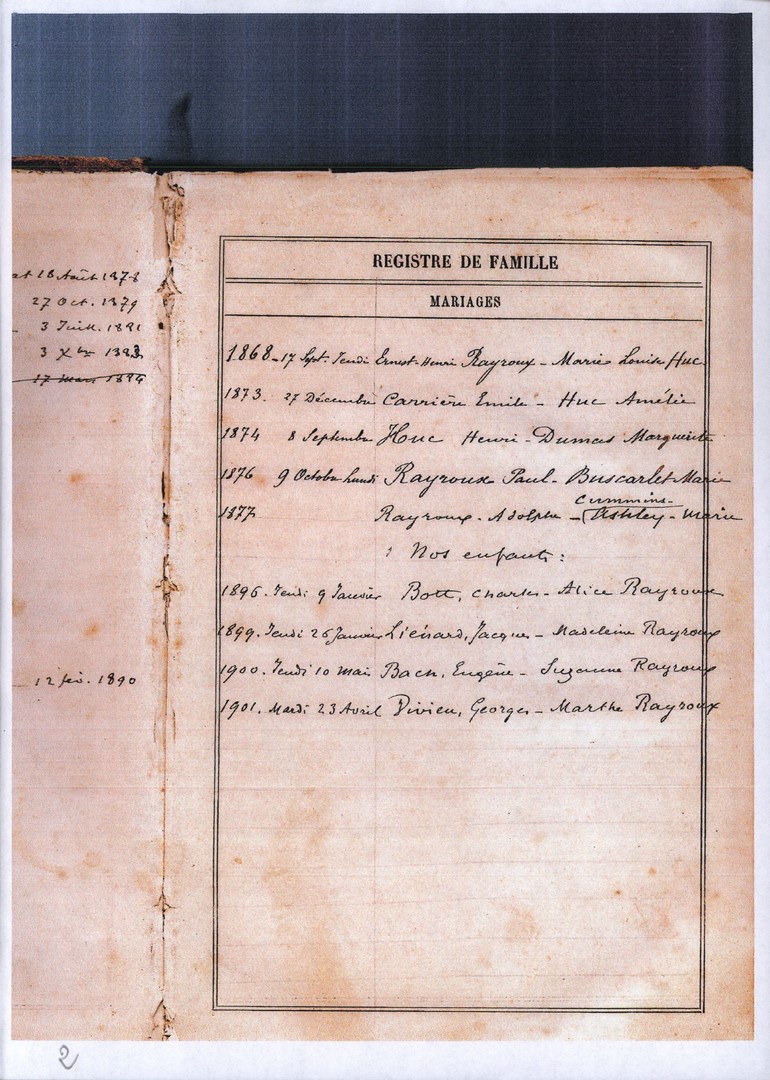 18 Août 1878
27 Oct. 1879
3 Juill. 1881
3 Xbre 1883
17 Mars 1884
12 fév. 1890
REGISTRE DE FAMILLE
MARIAGES
1868 - 17 Sept. Jeudi Ernest-Henri Rayroux - Marie Louise Huc
1873. 27 Décembre Carrière Emile - Huc Amélie
1874 8 Septembre Huc Henri - Dumas Marguerite
1876 9 Octobre Lundi Rayroux Paul - Buscarlet Marie
Cummins-
1877 Rayroux - Adolphe - (Ashley - Marie
Nos enfants :
1896. Jeudi 9 Janvier Bott, Charles - Alice Rayroux
1899. Jeudi 26 Janvier Liénard, Jacques - Madeleine Rayroux
1900. Jeudi 10 Mai Bach, Eugène - Suzanne Rayroux
1901. Mardi 23 Avril Vivien, Georges - Marthe Rayroux
2